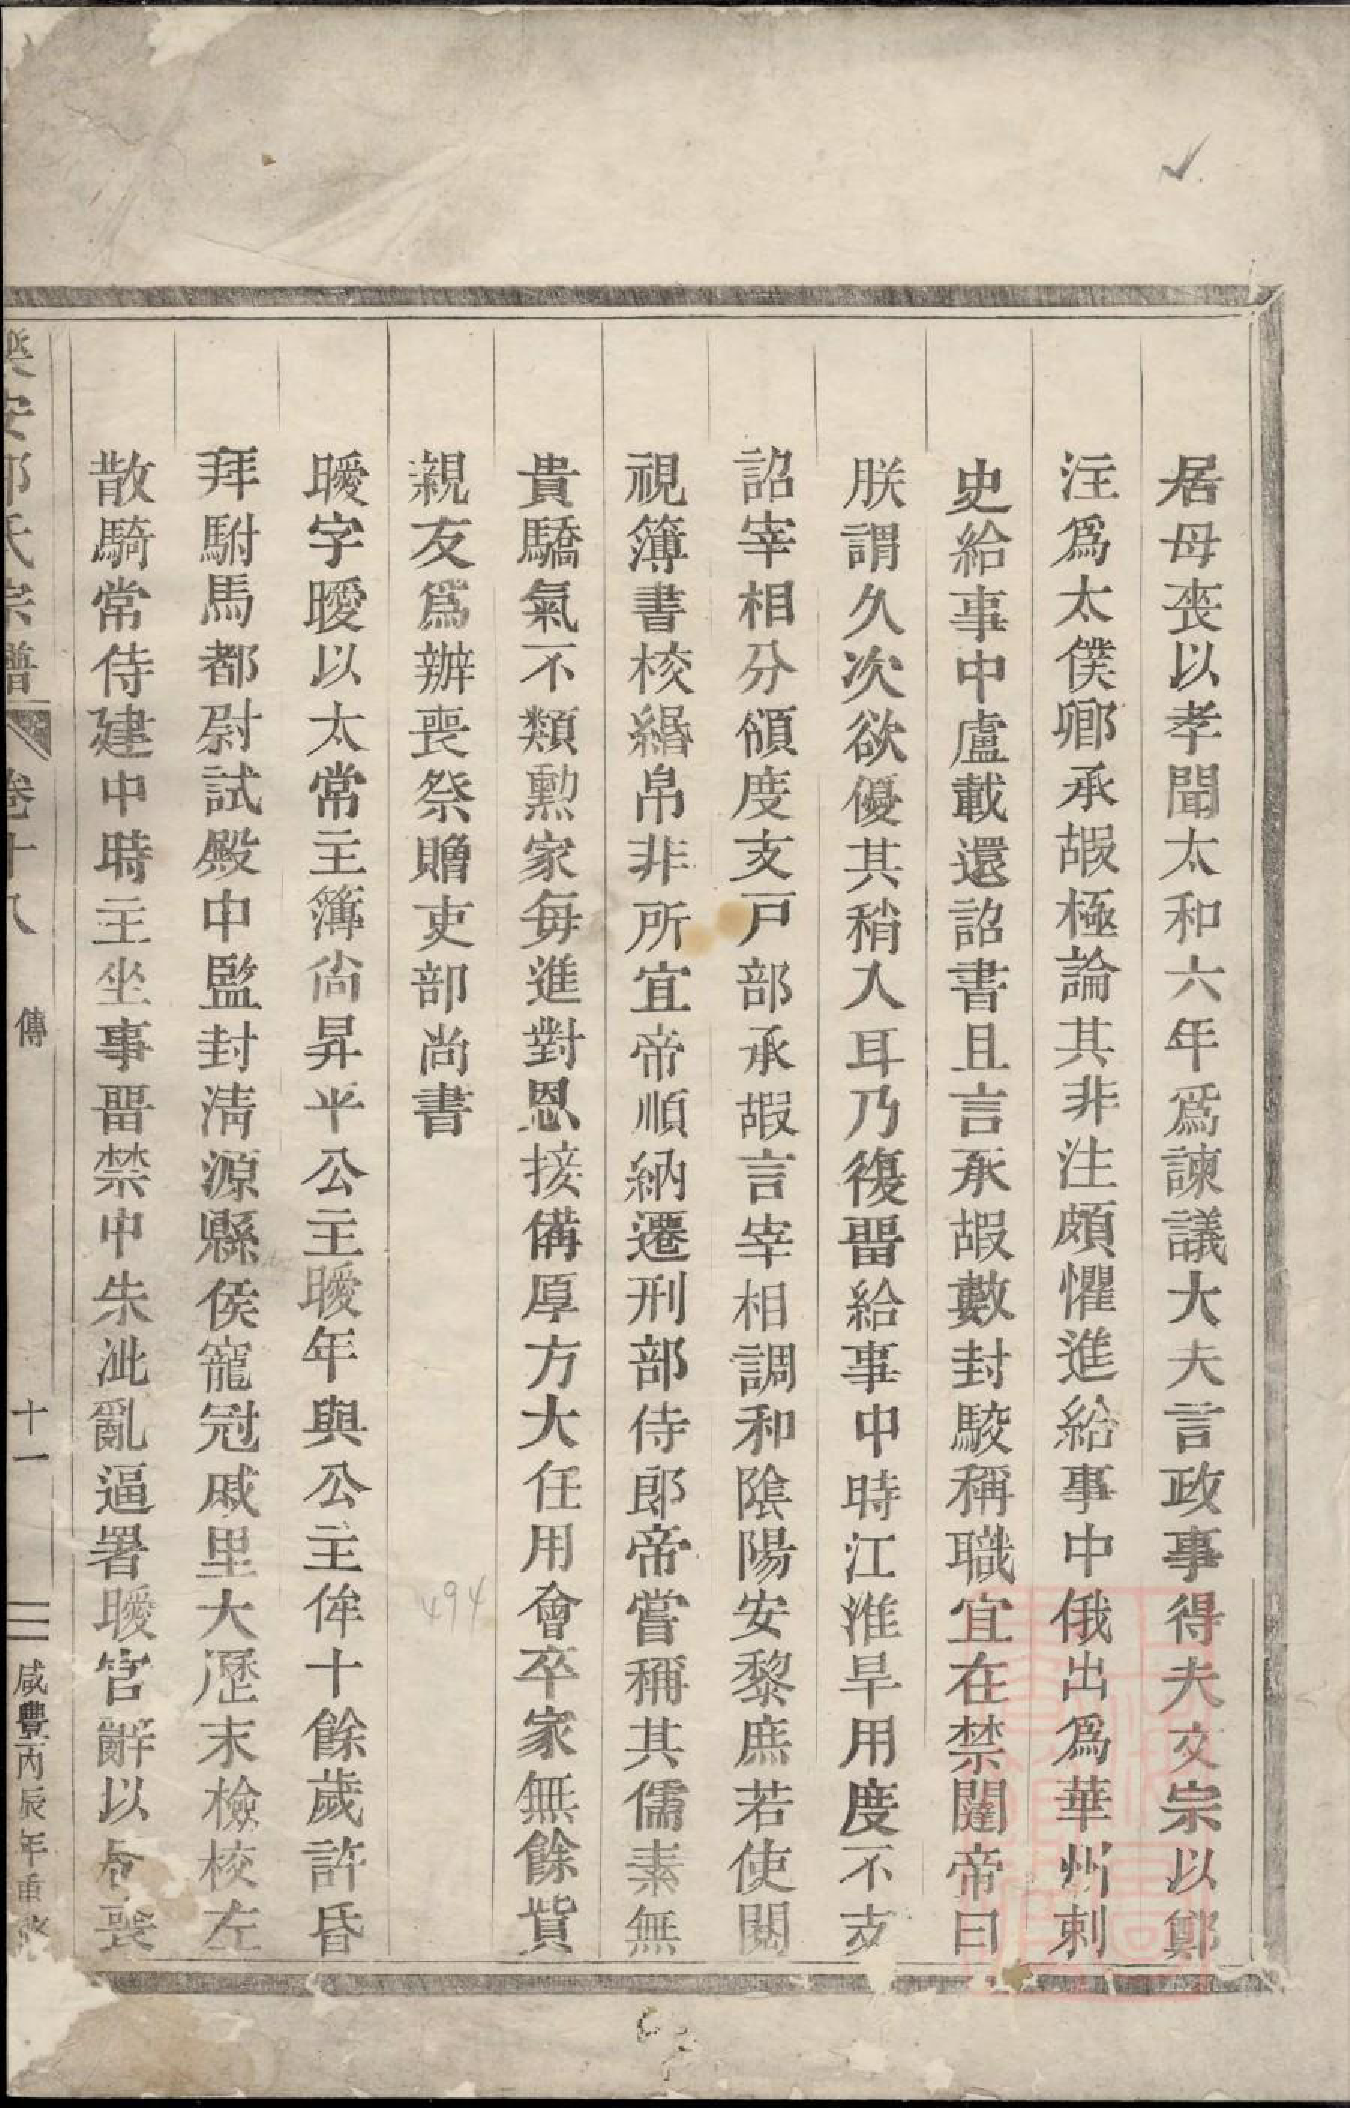 居母喪以孝聞太和六年爲諫議大夫言政事得失文宗以鄭
注爲太僕卿承嘏極論其非注頗懼進給事中俄出爲華州刺
史給事中盧載還詔書且言承嘏數封駮稱職宜在禁闥帝曰
朕謂久次欲優其稍入耳乃復畱給事中時江淮旱用度不支
詔宰相分領度支戸部承嘏言宰相調和陰陽安黎庶若使閱
視簿書校緡帛非所宜帝順納遷刑部侍郎帝嘗稱其儒素無
貴驕氣不類勲家每進對恩接備厚方大任用會卒家無餘貲
親友爲辦喪祭贈吏部尚書
曖字曖以太常主簿尚昇平公主曖年與公主侔十餘歲許昏
拜駙馬都尉試殿中監封清源縣侯寵冠戚里大歷末檢校左
散騎常侍建中時主坐事畱禁中朱泚亂逼署曖官辭以居喪
樂安郭氏宗譜
卷十八
傳
十一
咸豐丙辰年重
494